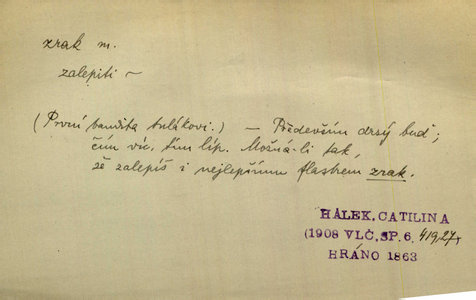 zrak m.
zalepiti ~
(První bandita tulákovi.) – Především drsý buď;
čím víc, tím líp. Možná-li tak,
že zalepíš i nejlepšímu flastrem zrak.
HÁLEK, CATILINA
(1908 VLČ, SP. 6, 419,27)
HRÁNO 1863